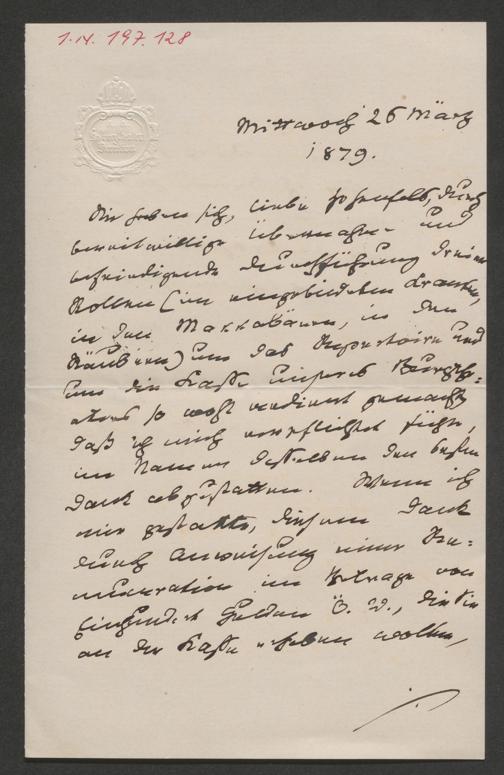 I.N. 197.128
Mittwoch 26 März
1879.
Sie haben sich, lieber Hohenfels, durch
bereitwillige Übernahme und
befriedigende Durchführung dreier
Rollen (im eingebildeten Kranken,
in den Makkabäern, in den
Räubern) um das Repertoire und
um die Kasse unseres Burgth-
eaters so wohl verdient gemacht
daß ich mich verpflichtet fühle,
im Namen desselben den besten
Dank abzustatten. Wenn ich
mir gestatte, diesem Dank
durch Anweisung einer Re-
muneration im Betrage von
Gulden Ö. W., die Sie
an der Kasse erheben wollen,